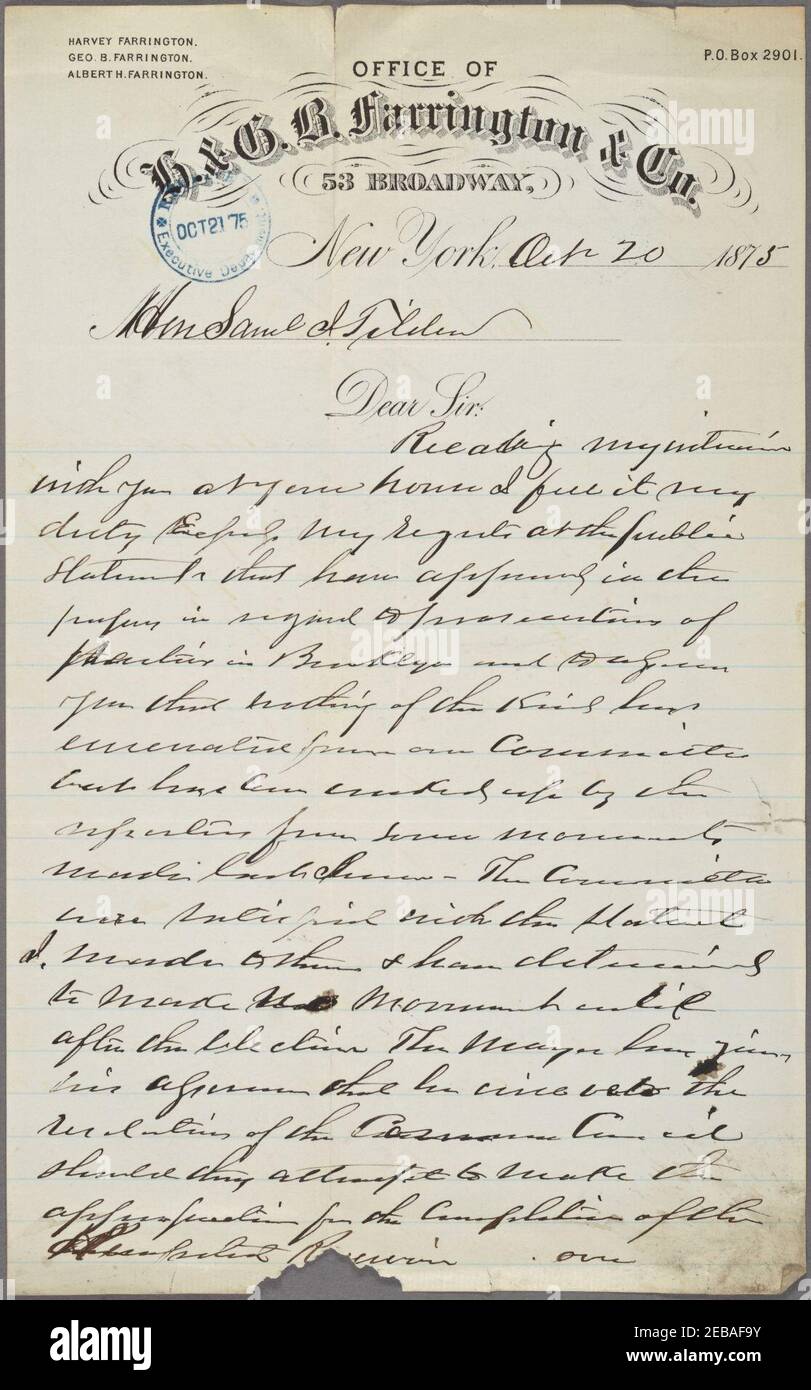 HARVEY FARRINGTON.
GEO. B. FARRINGTON.
ALBERT H. FARRINGTON.
P.O. Box 2901.
OFFICE OF
H. & G. B. Farrington & Co.
53 BROADWAY,
OCT 21 75
Executive
New York, Oct 20 1875
Hon Saml J. Tilden
Dear Sir:
Recalling my interview
with you at your house I feel it my
duty Express my regrets at the public
statements that have appeared in the
papers in regard to prosecutions of
parties in Brooklyn and to assure
you that nothing of the kind has
emenated from our Committee
but has been worked up by the
reporters from some movements
made last June - The Committee
were satisfied with the statemt
I. made to them & have determined
to make no movement until
after the Election The Mayor has given
his assurance that he will veto the
resolution of the Common Council
should they attempt to make the
appropriation for the Completion of the
Hempstead Reservoir over
alamy
Image ID: 2EBAF9Y
www.alamy.com